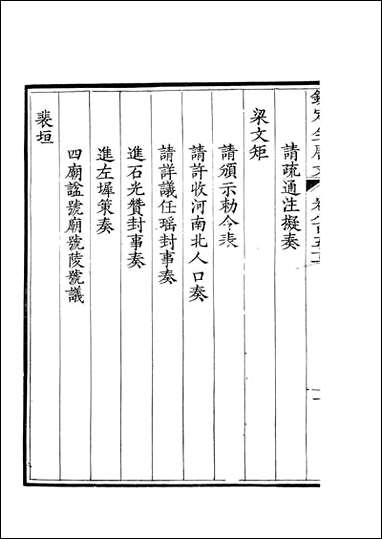 欽定全唐文　卷八百五十
請疏通注擬奏
梁文矩
請頒示勅令表
請許收河南北人口奏
請詳議任瑶封事奏
進石光贊封事奏
進左墀策奏
四廟諡號廟號陵號議
裴垣